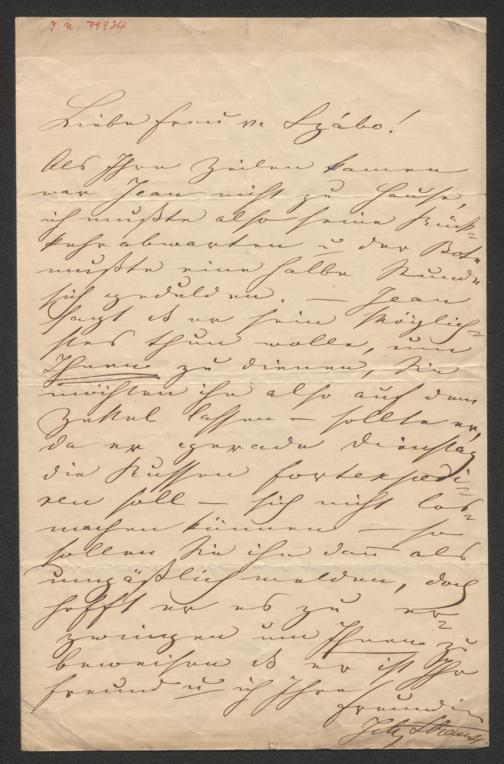 J. N. 79934
Liebe Frau v. Szábo!
Als Ihre Zeilen kamen
war Jean nicht zu Hause,
ich mußte also seine Rück=
kehr abwarten u der Bote
mußte eine halbe Stunde
sich gedulden. — Jean
sagt ds er sein Möglich=
stes thun wolle, um
Ihnen zu dienen, Sie
möchten ihn also auf dem
Zettel lassen — sollte er,
da er gerade Dienstag
die Russen fortexpedi=
ren soll — sich nicht los=
machen können — so
sollen Sie ihn dañ als
unpäßlich melden, doch
hofft er es zu er=
zwingen um Ihnen zu
beweisen ds er ist Ihr
Freund u ich Ihre
Freundin
Jetty Strauss